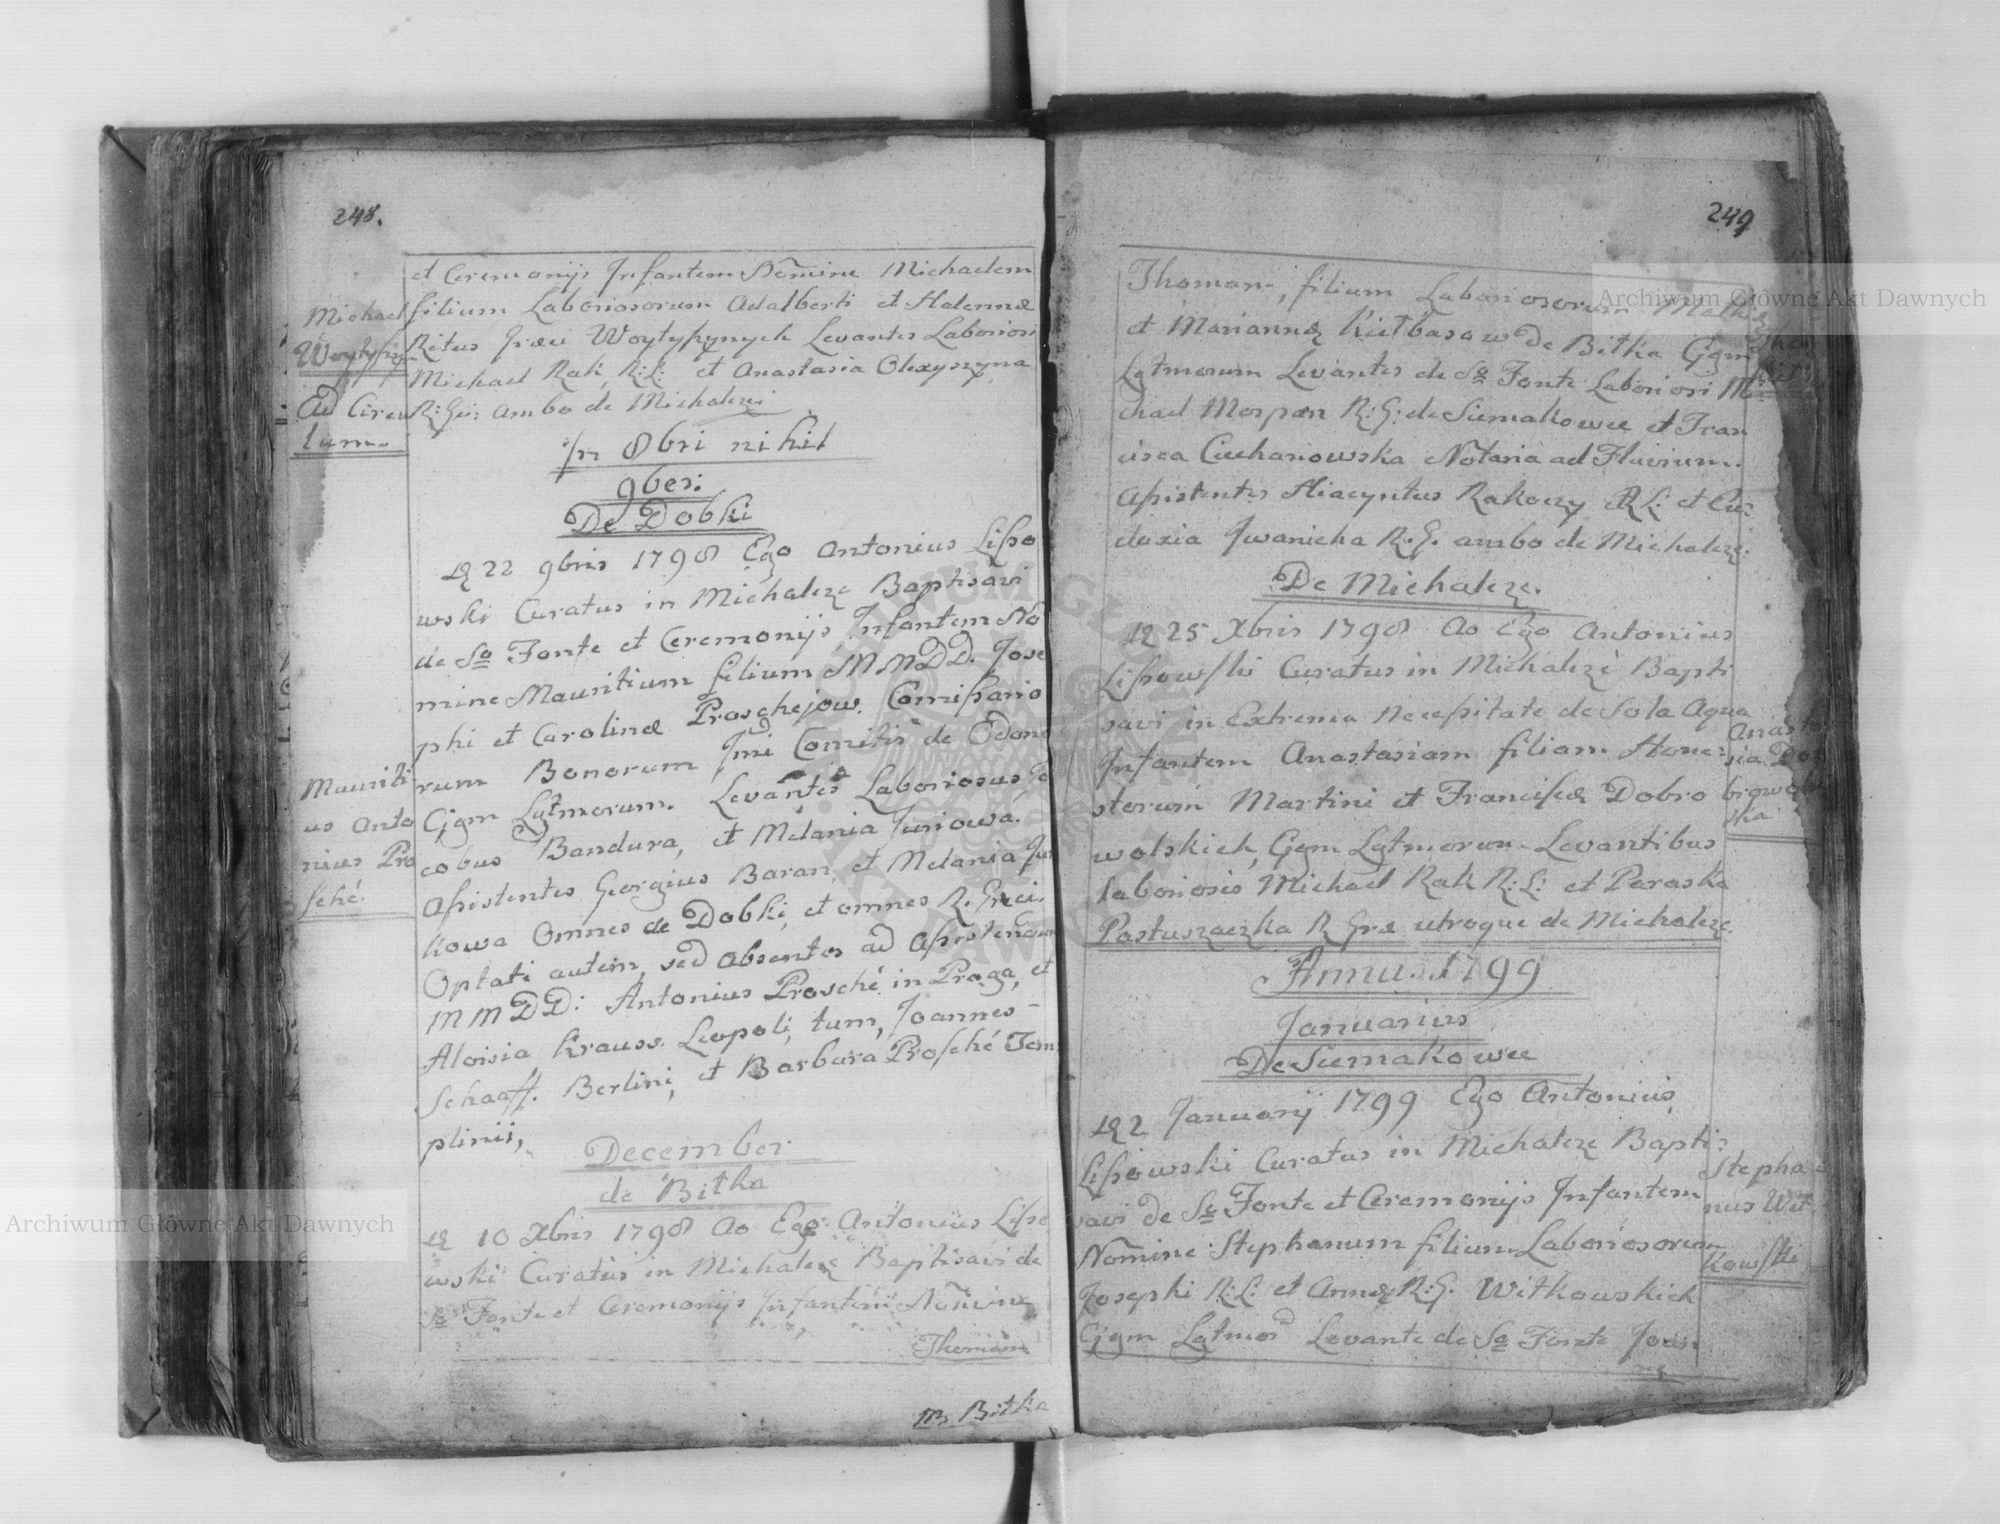 248.
et Ceremonijs Infantem Nomine Michaelem
Michael filium Laboriosorum Adalberti et Helennæ
Woytysyn Ritus Græci Woytysynych Levantes Laboriosi
Michael Rak R: L: et Anastasia Olexyszyna
Ad Circu R: Gr: ambo de Michalcze
lum.
In 8bri nihil
9ber:
De Dobki
D 22 9bris 1798 Ego Antonius Lisso
wski Curatus in Michalcze Baptisavi
de So Fonte et Ceremonijs Infantem No
mine Mauritium filium MMDD. Jose
phi et Carolinæ Proschejow. Comissario
rum Bonorum Comitis de
Mauriti
us Anto
nius Pro
sché.
Cjgm Lgtmorum. Levantes Laboriosus Ja
cobus Bandura, et Melania Juriowa.
Assistentes Georgius Baran, et Melania
kowa Omnes de Dobki, et omnes R. Græci.
Optati autem, sed absentes ad Assistendum
MMDD: Antonius Prosché in Praga, et
Aloisia Krauss. Leopoli, tum, Joannes
Schaaff. Berlini, et Barbara Prosché Tem
plinii,
December
de Bitka
D 10 Xbris 1798 Ao Ego Antonius Lisso
wski Curatus in Michalcze Baptisavi de
So Fonte et Ceremonijs Infantem Nomine
Thomam
Bitka
249
Thomam, filium Laboriosorum Mathiæ
et Mariannæ Kiełbasow De Bitka Cjgm
Lgtmorum Levantes de So Fonte Laboriosi Mi
chael Morpan R: G: de Siemakowce et Fran
cisca Ciechanowska Notaria ad Fluvium.
Assistentes Hiacyntus Rakoczy R L: et Eu
doxia Iwanicha R. G. ambo de Michalcze.
De Michalcze.
D 25 Xbris 1798 Ao Ego Antonius
Lissowski Curatus in Michalcze Bapti
savi in Extrema Necessitate de Sola Aqua
Infantem Anastasiam filiam Hone
storum Martini et Franciscæ Dobro
wolskich, Cjgm Lgtmorum Levantibus
laboriosis Michael Rak R: L: et Paraska
Pastuszaczka R Græ utroque de Michalcze.
Anasta
sia Do
browol
ska
Annu. 1799
Januarius
De Siemakowce
D 2 Januarij 1799 Ego Antonius
Lissowski Curatus in Michalcze Bapti
savi de So Fonte et Ceremonijs Infantem
Nomine Stephanum filium Laboriosorum
Josephi R: L: et Annæ R: G. Witkowskich
Cjgm Lgtmor Levante de So Fonte Joan
næ
Stepha
nus Wit
kowski
Archiwum Główne Akt Dawnych
Archiwum Główne Akt Dawnych